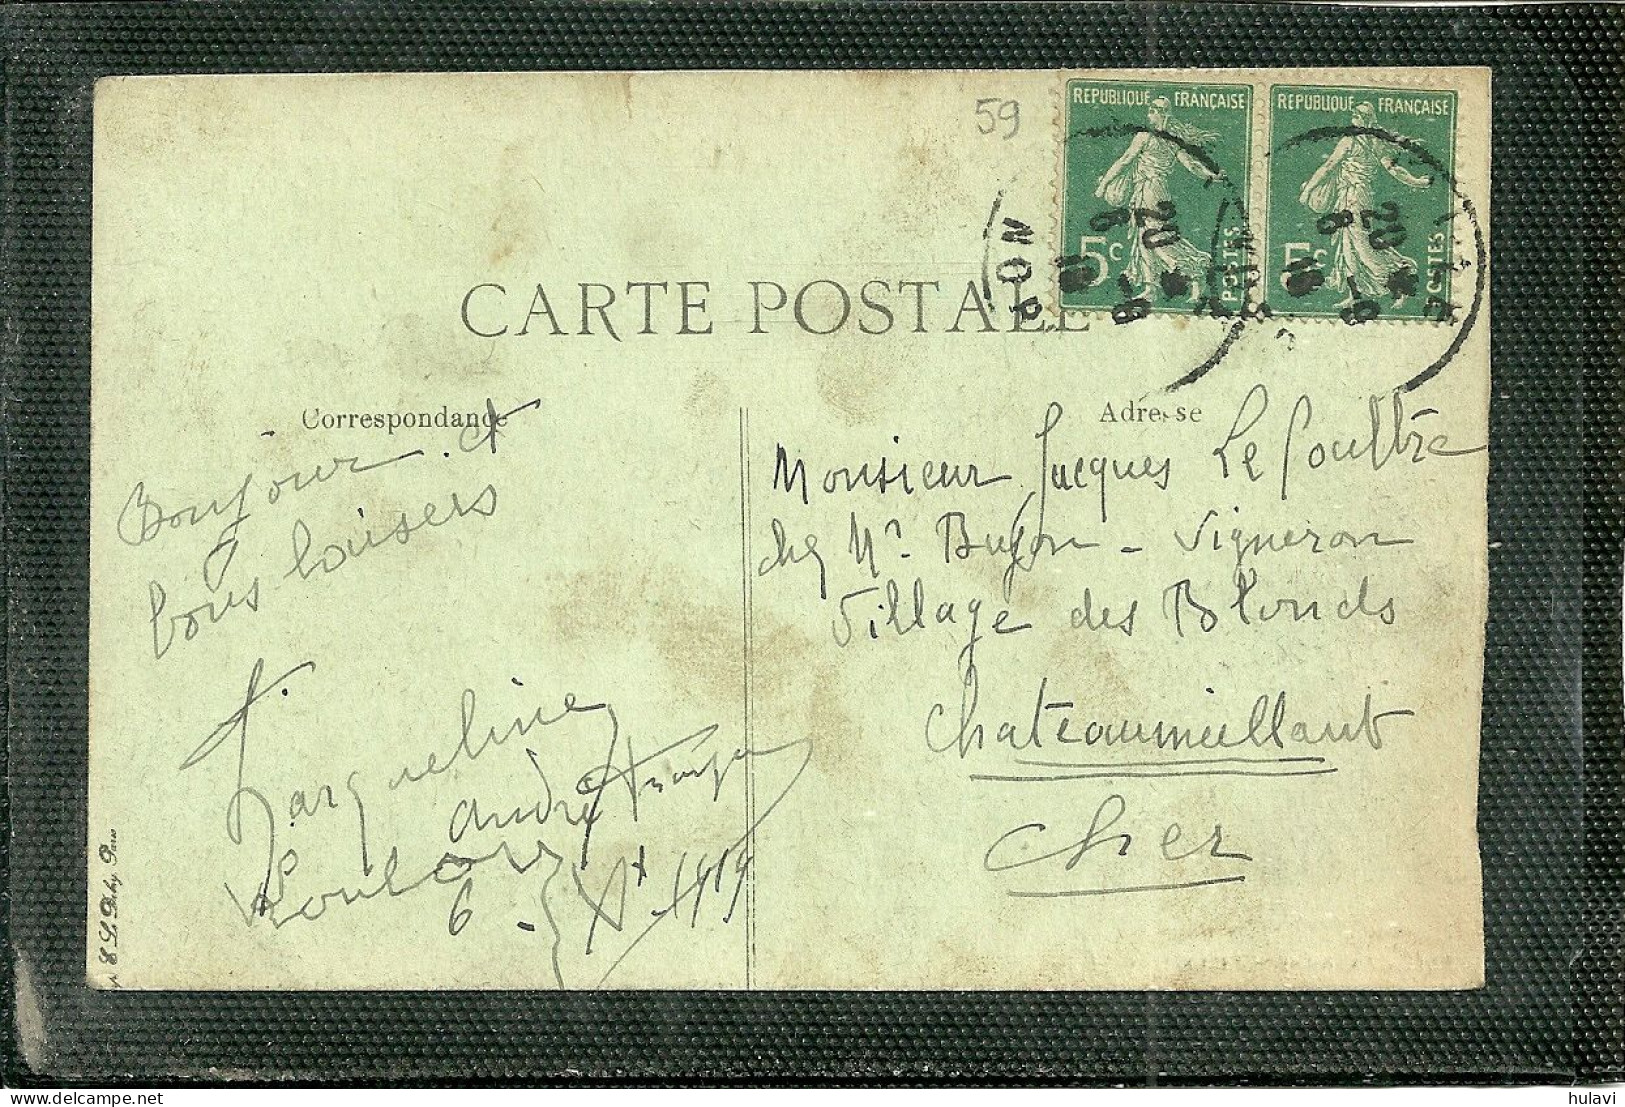 59
REPUBLIQUE FRANÇAISE
5c POSTES
REPUBLIQUE FRANÇAISE
5c POSTES
20 - 8
6 19
20 - 8
6 19
NOR
CARTE POSTALE
Correspondance
Adresse
Bonjour et
bons baisers
Jacqueline
André Françoise
6 - Xt 1919
Monsieur Jacques Le Coultre
chez Mr. Buson - Vigneron
Village des Blonds
Chateaumeillant
Cher
E. L. Deley, Paris
hulavi